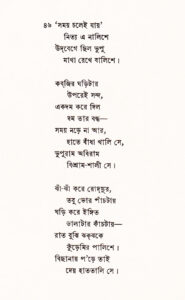 ৪৯ ‘সময় চলেই যায়’
নিত্য এ নালিশে
উদ্‌বেগে ছিল ভুপু
মাথা রেখে বালিশে।
কব্‌জির ঘড়িটার
উপরেই সন্দ,
একদম করে দিল
দম তার বন্ধ—
সময় নড়ে না আর,
হাতে বাঁধা খালি সে,
ভুপুরাম অবিরাম
বিশ্রাম-শালী সে।
ঝাঁ-ঝাঁ করে রোদ্‌দুর,
তবু ভোর পাঁচটায়
ঘড়ি করে ইঙ্গিত
ডালাটার কাঁচটায়—
রাত বুঝি ঝক্‌ঝকে
কুঁড়েমির পালিশে।
বিছানায় প’ড়ে তাই
দেয় হাততালি সে।